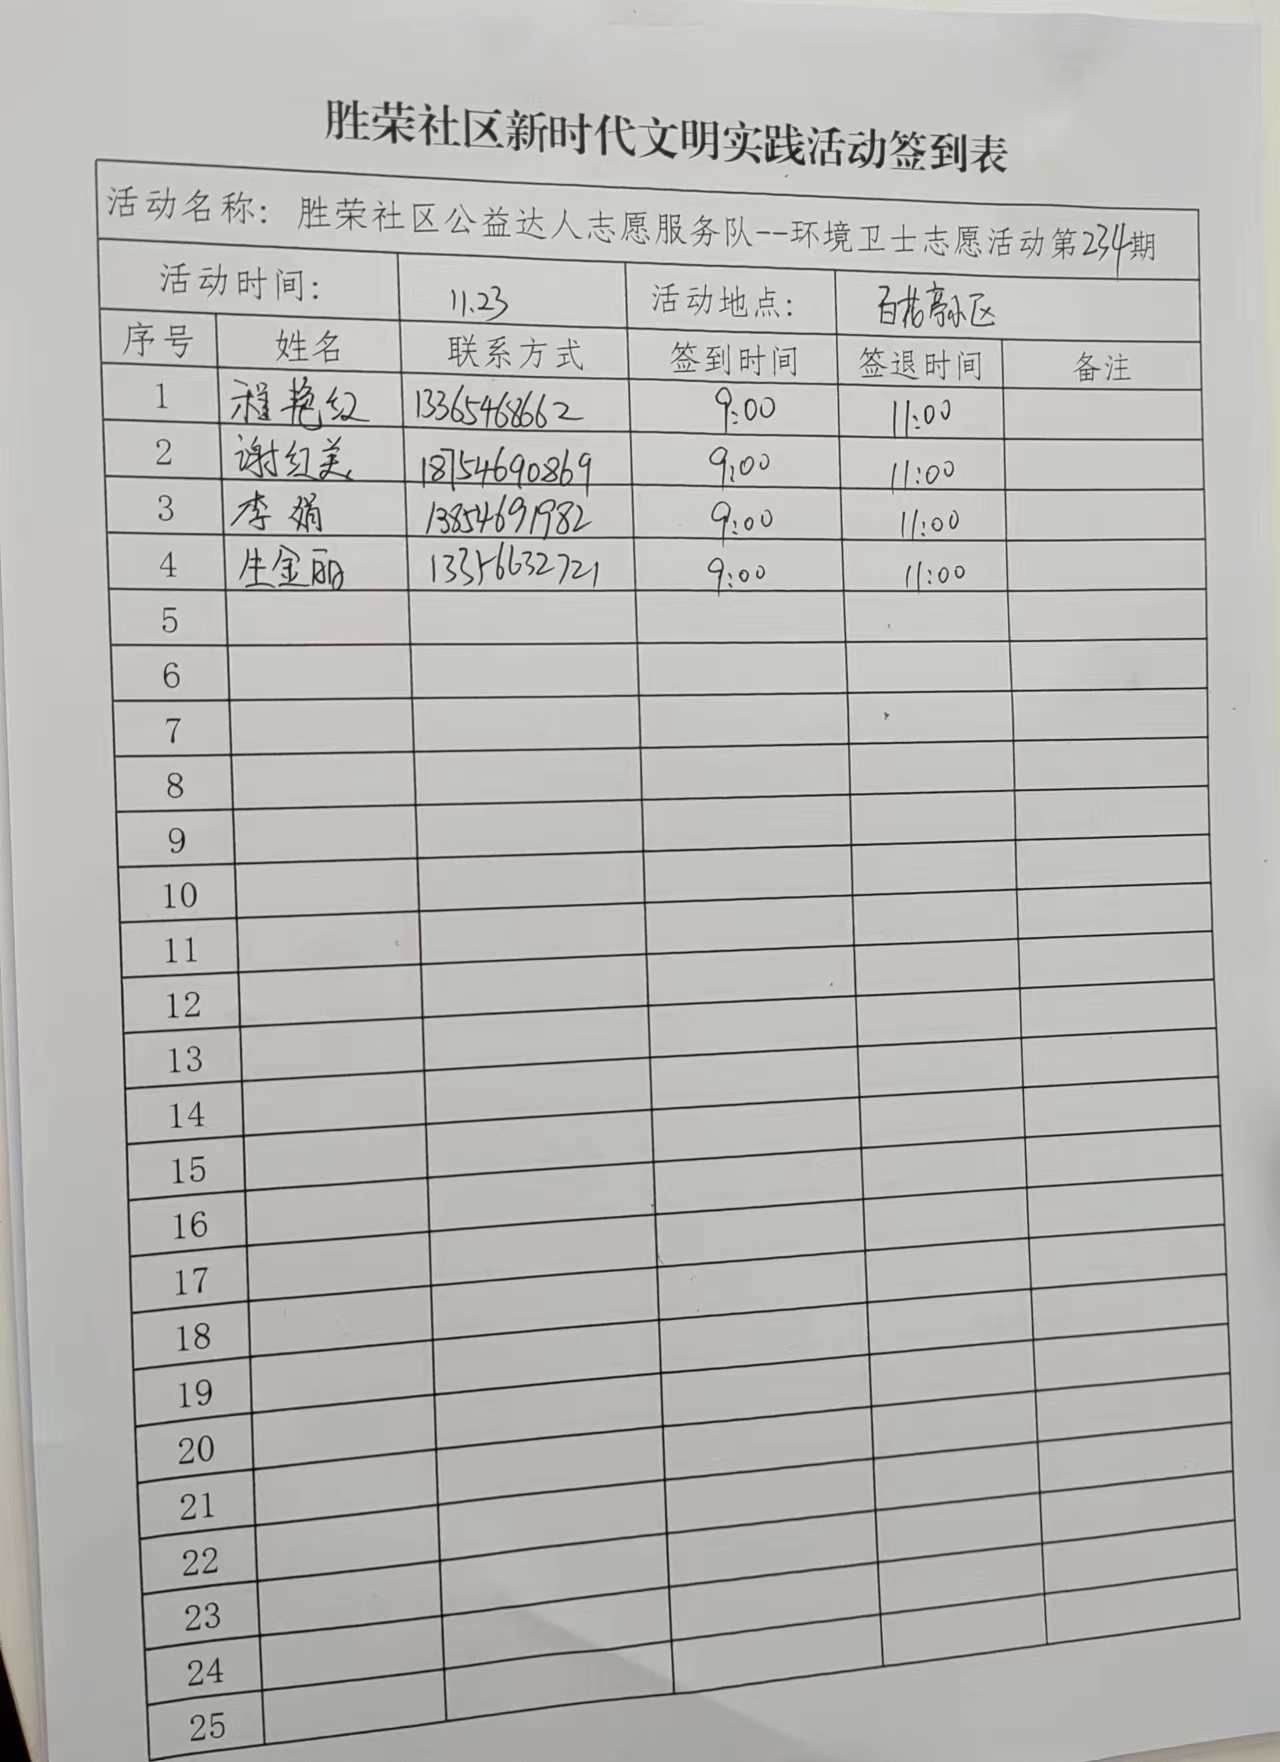 胜荣社区新时代文明实践活动签到表
活动名称：胜荣社区公益达人志愿服务队--环境卫士志愿活动第234期
活动时间： 11.23 活动地点： 百花亭小区
序号 姓名 联系方式 签到时间 签退时间 备注
1 程艳红 13365468662 9:00 11:00
2 谢红美 18754690869 9:00 11:00
3 李娟 13854691982 9:00 11:00
4 生金丽 13356632721 9:00 11:00
5
6
7
8
9
10
11
12
13
14
15
16
17
18
19
20
21
22
23
24
25